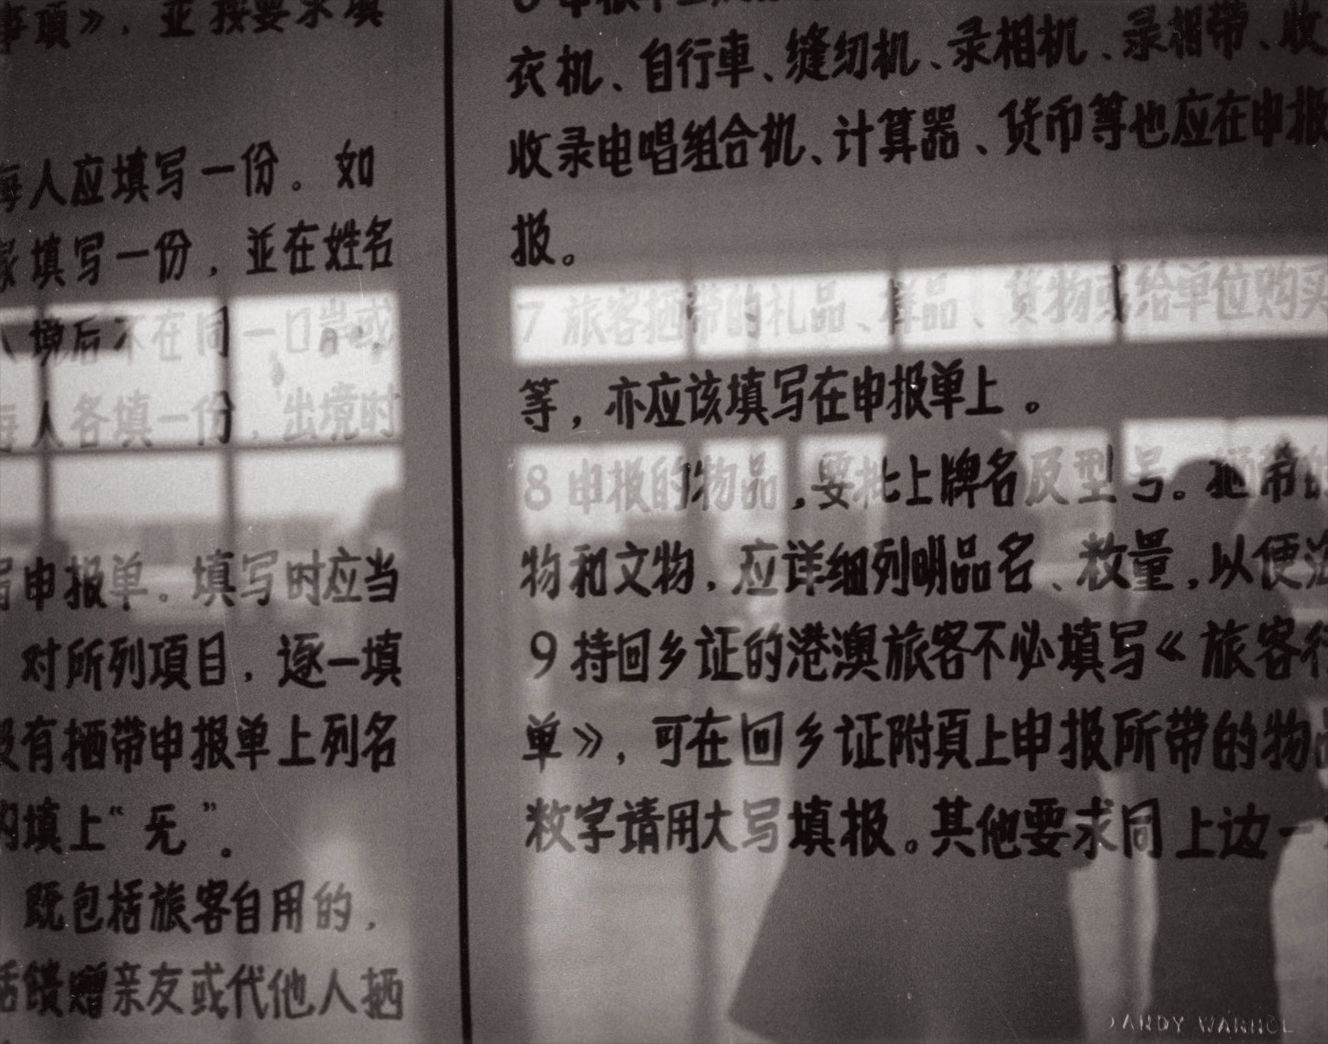 事項》，並按要求填
每人应填写一份。如
填写一份，並在姓名
境后不在同一口岸或
每人各填一份，出境时
申报单。填写时应当
对所列項目，逐一填
没有拪带申报单上列名
的填上“旡”。
既包括旅客自用的，
括馈赠亲友或代他人拪
衣机、自行車、缝纫机、录相机、录相带、收
收录电唱组合机、计算器、货币等也应在申报
报。
7 旅客拪带的礼品、样品、货物或给单位购买
等，亦应该填写在申报单上。
8 申报的物品，要批上牌名及型号。拪带的
物和文物，应详细列明品名、数量，以便
9 持回乡证的港澳旅客不必填写《旅客行
单》，可在回乡证附頁上申报所带的物品
数字请用大写填报。其他要求同上边一
ANDY WARHOL